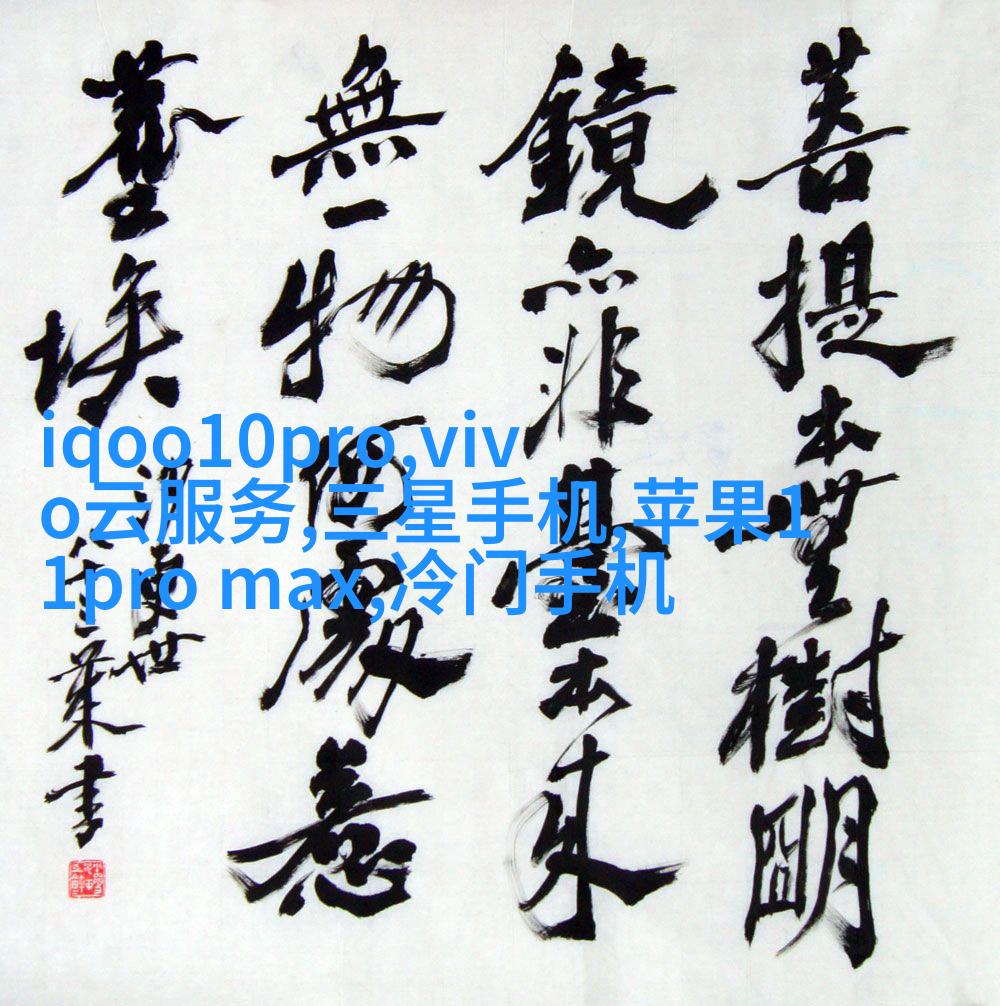 菩提本無樹明
鏡亦非臺本來
無一物何處惹
塵埃
書
iqoo10pro,viv
o云服务,三星手机,苹果1
1pro max,冷门手机